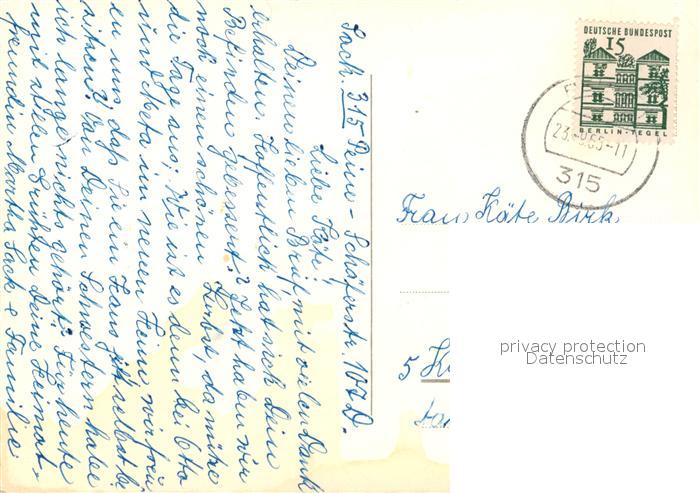 Sack. 315 Peine - Schäferstr. 107D.
Liebe Käte!
Deinen lieben Brief mit vielen Dank
erhalten. Hoffentlich hat sich Dein
Befinden gebessert? Jetzt haben wir
noch einen schönen Herbst, da nütze
die Tage aus; Wie ist es denn bei Otto
und Meta im neuen Heim wir freu
en uns daß Sie ein Haus jetzt selbst be
sitzen? Von Deinen Schwestern habe
ich lange nichts gehört? Für heute
mit vielen Grüßen Deine Heimat-
freundin Martha Sack + Familie.
DEUTSCHE BUNDESPOST
15
BERLIN-TEGEL
-11
315
Frau Käte Birk
5 K
privacy protection
Datenschutz